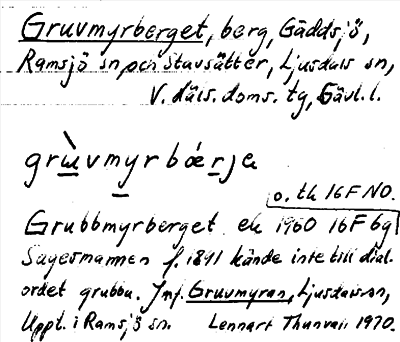 Gruvmyrberget, berg, Gäddsjö,
Ramsjö sn och Stavsätter, Ljusdals sn,
V. Häls. doms. tg, Gävl. l.
grùvmyrbǽrja
o. tk 16F NO.
Grubbmyrberget ek 1960 16F 6g
Sagesmannen f. 1891 kände inte till dial.
ordet grubba. Jmf. Gruvmyran, Ljusdals sn,
Uppt. i Ramsjö sn. Lennart Thunvall 1970.